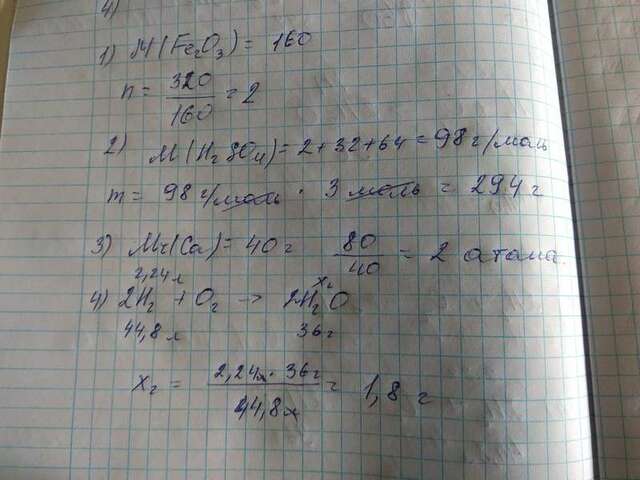 4)
1) M(Fe₂O₃) = 160
n = 320/160 = 2
2) M(H₂SO₄) = 2+32+64 = 98 г/моль
m = 98 г/моль · 3 моль = 294 г
3) Mr(Ca) = 40 г 80/40 = 2 атома
2,24 л xг
4) 2H₂ + O₂ → 2H₂O
44,8 л 36 г
xг = 2,24л · 36г / 44,8л = 1,8 г